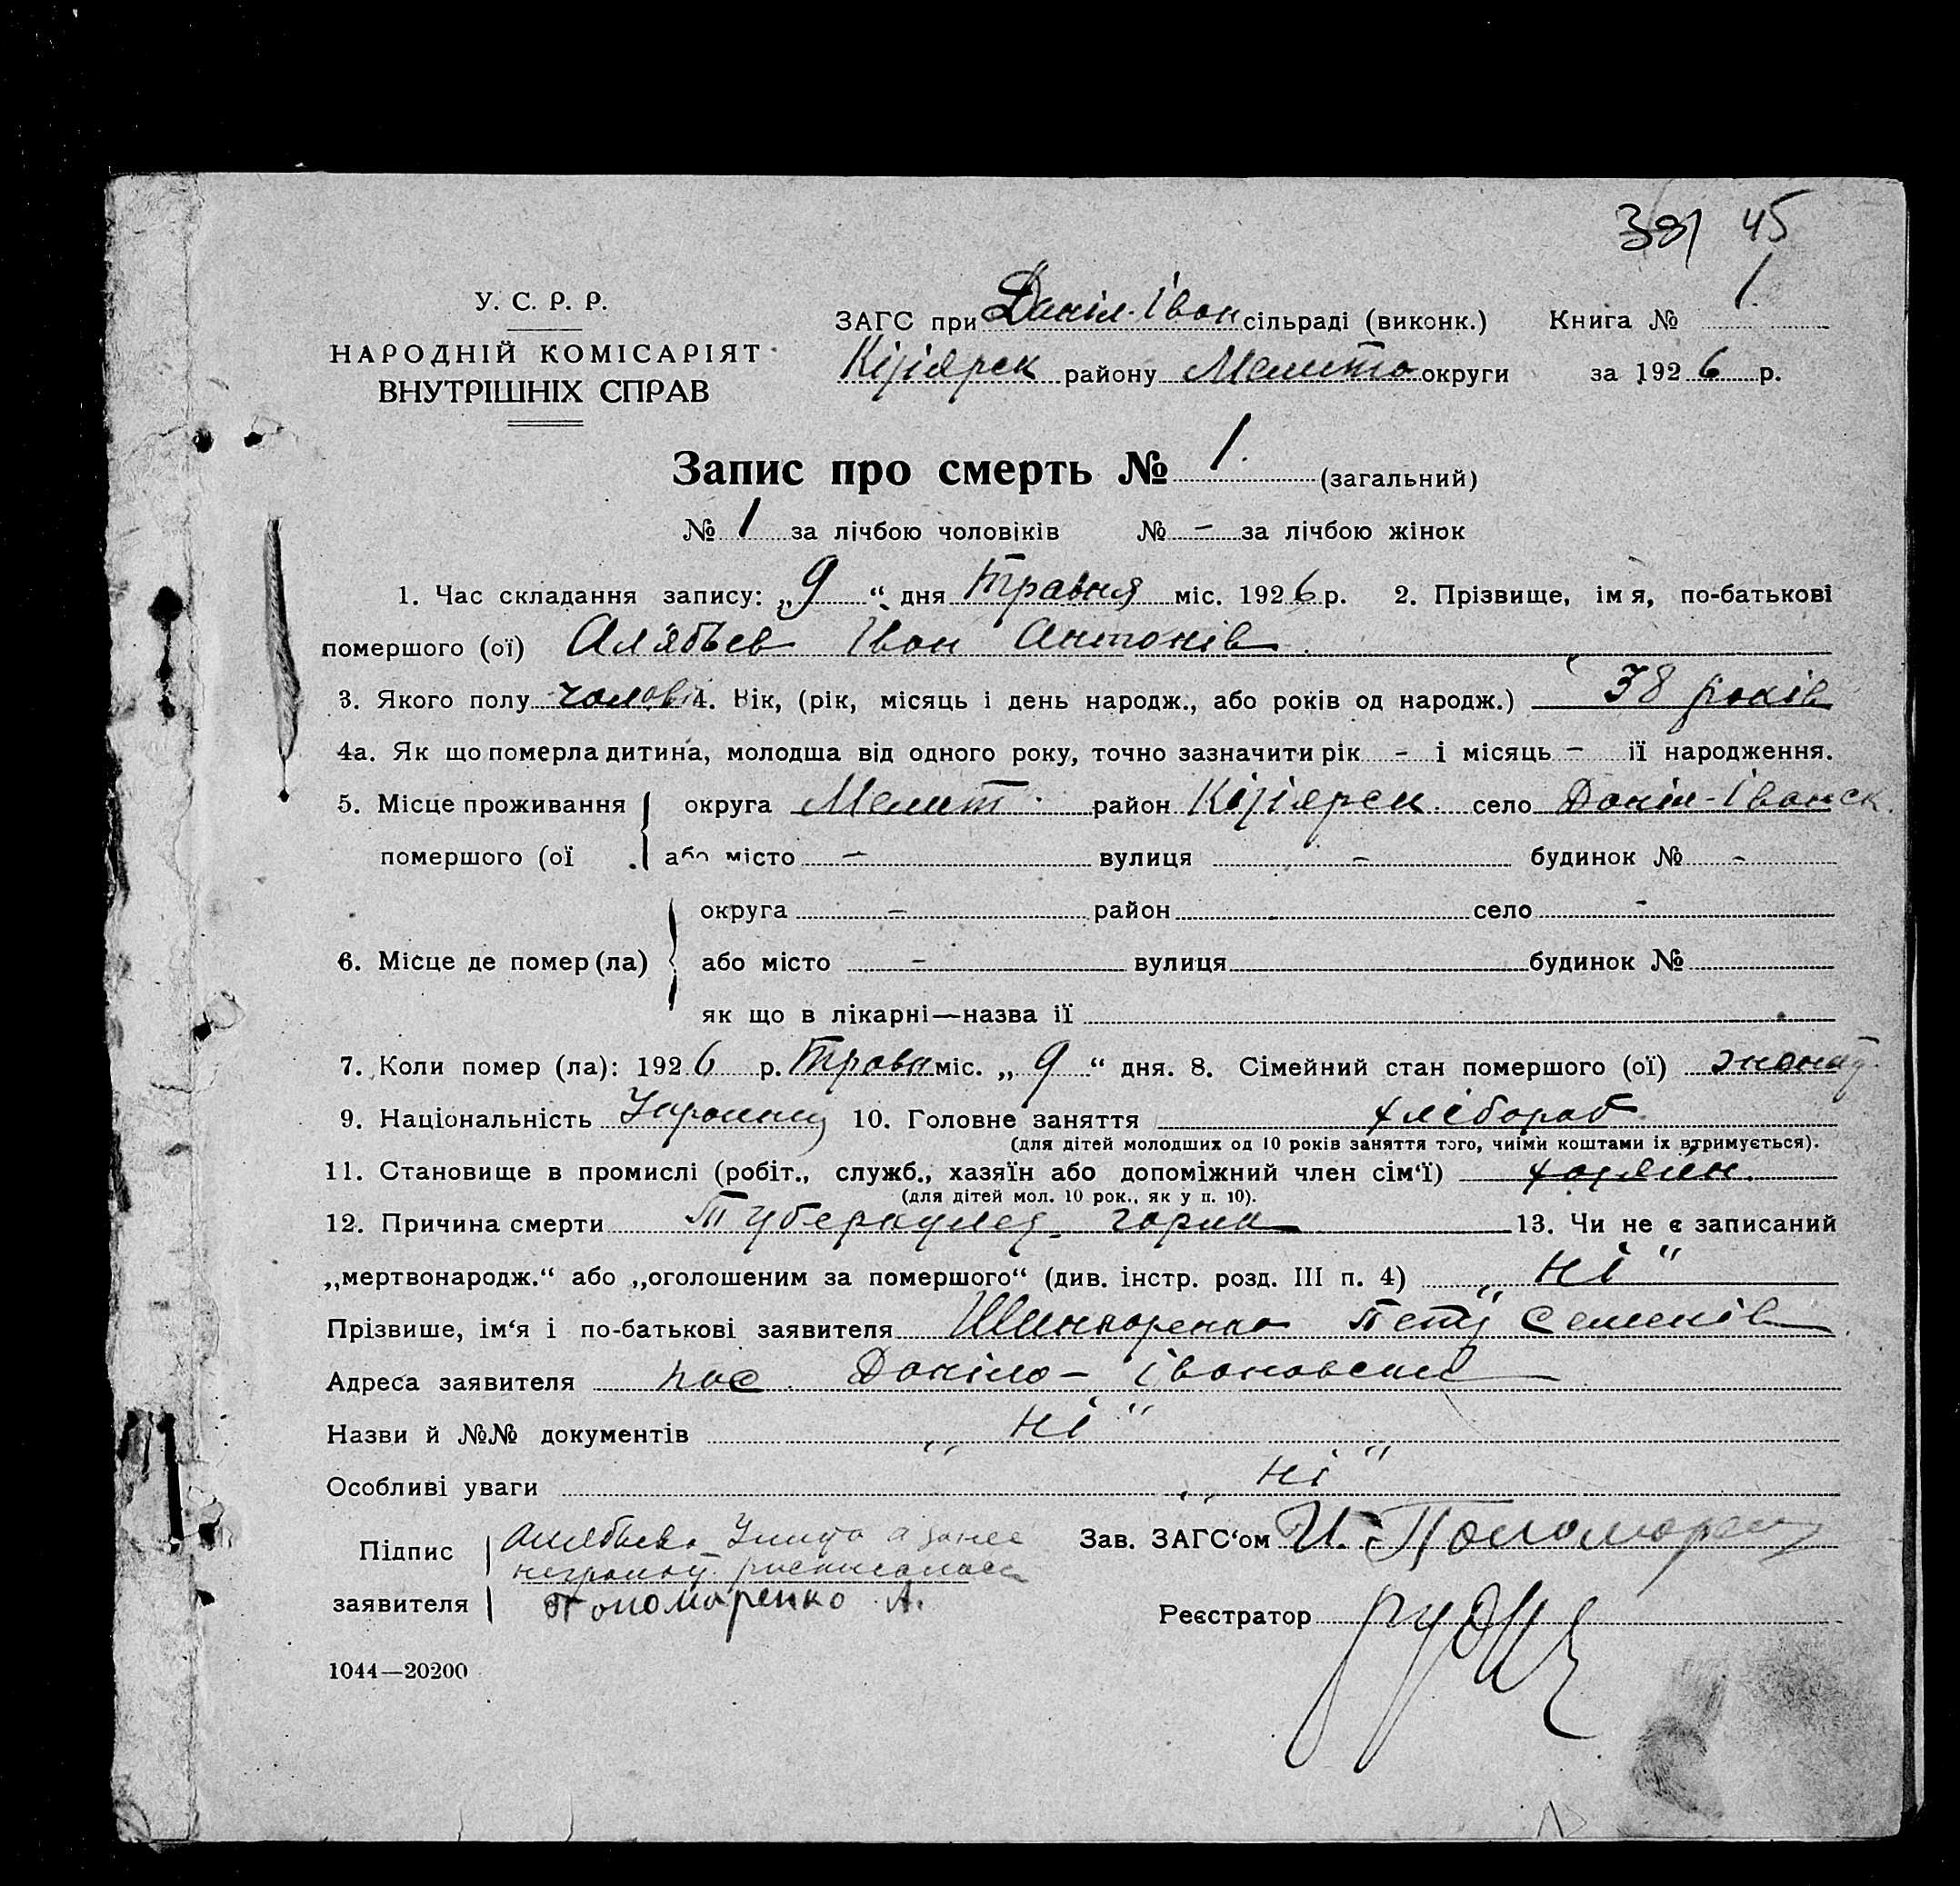 381 45
У. С. Р. Р.
НАРОДНІЙ КОМІСАРІЯТ
ВНУТРІШНІХ СПРАВ
ЗАГС при Даніл-Іван сільраді (виконк.) Книга № 1.
Кізіярск району Мелито округи за 1926 р.
Запис про смерть № 1. (загальний)
№ 1 за лічбою чоловіків № – за лічбою жінок
1. Час складання запису: „9“ дня Травня міс. 1926 р. 2. Прізвище, імя, по-батькові
помершого (ої) Ал'ябьев Іван Антонів
3. Якого полу чолові 4. Вік, (рік, місяць і день народж., або років од народж.) 38 років
4а. Як що померла дитина, молодша від одного року, точно зазначити рік – і місяць – ії народження.
5. Місце проживання округа Мелит. район Кізіярск. село Даніл-Іванск.
помершого (ої або місто – вулиця – будинок № –
округа – район село -
6. Місце де помер (ла) або місто – вулиця будинок №
як що в лікарні—назва ії
7. Коли помер (ла): 1926 р. Травн міс. „9“ дня. 8. Сімейний стан помершого (ої)
9. Національність Украинц 10. Головне заняття хлібороб
(для дітей молодших од 10 років заняття того, чиїми коштами їх втримується).
11. Становище в промислі (робіт., служб., хазяїн або допоміжний член сім'ї) хазяїн.
(для дітей мол. 10 рок., як у п. 10).
12. Причина смерти Туберкулез горла 13. Чи не є записаний
„мертвонародж.“ або „оголошеним за помершого“ (див. інстр. розд. III п. 4) „ні“
Прізвише, ім'я і по-батькові заявителя Шинкаренко Семенів
Адреса заявителя пос. Даніло-Івановский
Назви й №№ документів „ні“
Особливі уваги „ні“
Підпис Алябьева а за нее Зав. ЗАГС'ом И. Пономарен
неграмот. росписалась
заявителя Пономаренко А.
Реєстратор
1044—20200